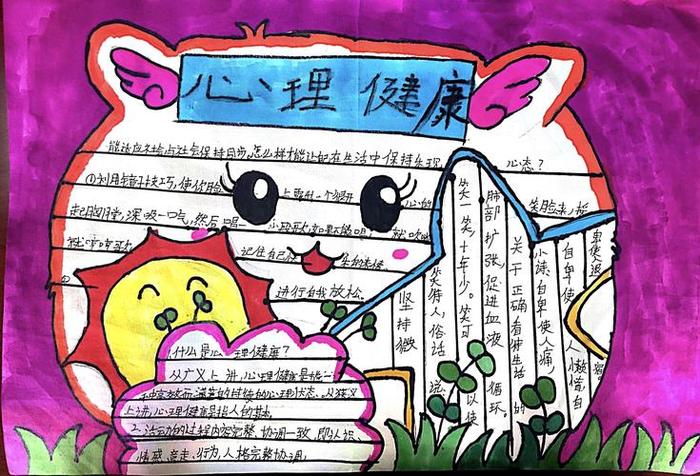 心理健康
能适应环境与社会保持同步,怎么样才能让自己在生活中保持乐观 心态?
①利用转 技巧,使你脸 上露出一个很开 心的 笑脸来,挺
起胸膛,深吸一口气,然后唱一 小段歌,如果不能唱 就吹
就 记住自己
进行自我放松。
坚持微
笑待人,俗话说
笑一笑,十年少。笑可以使
肺部扩张,促进血液循环。
关于正确看待生活的
小诗:自卑使人痛,
自卑使人懒惰,自
卑使退
什么是心理健康?
从广义上讲,心理健康是指一
种高效而满意的持续的心理状态,从狭义
上讲,心理健康是指人的基本
心理活动的过程内容完整 协调一致,即认识、
情感、意志、行为、人格完整协调